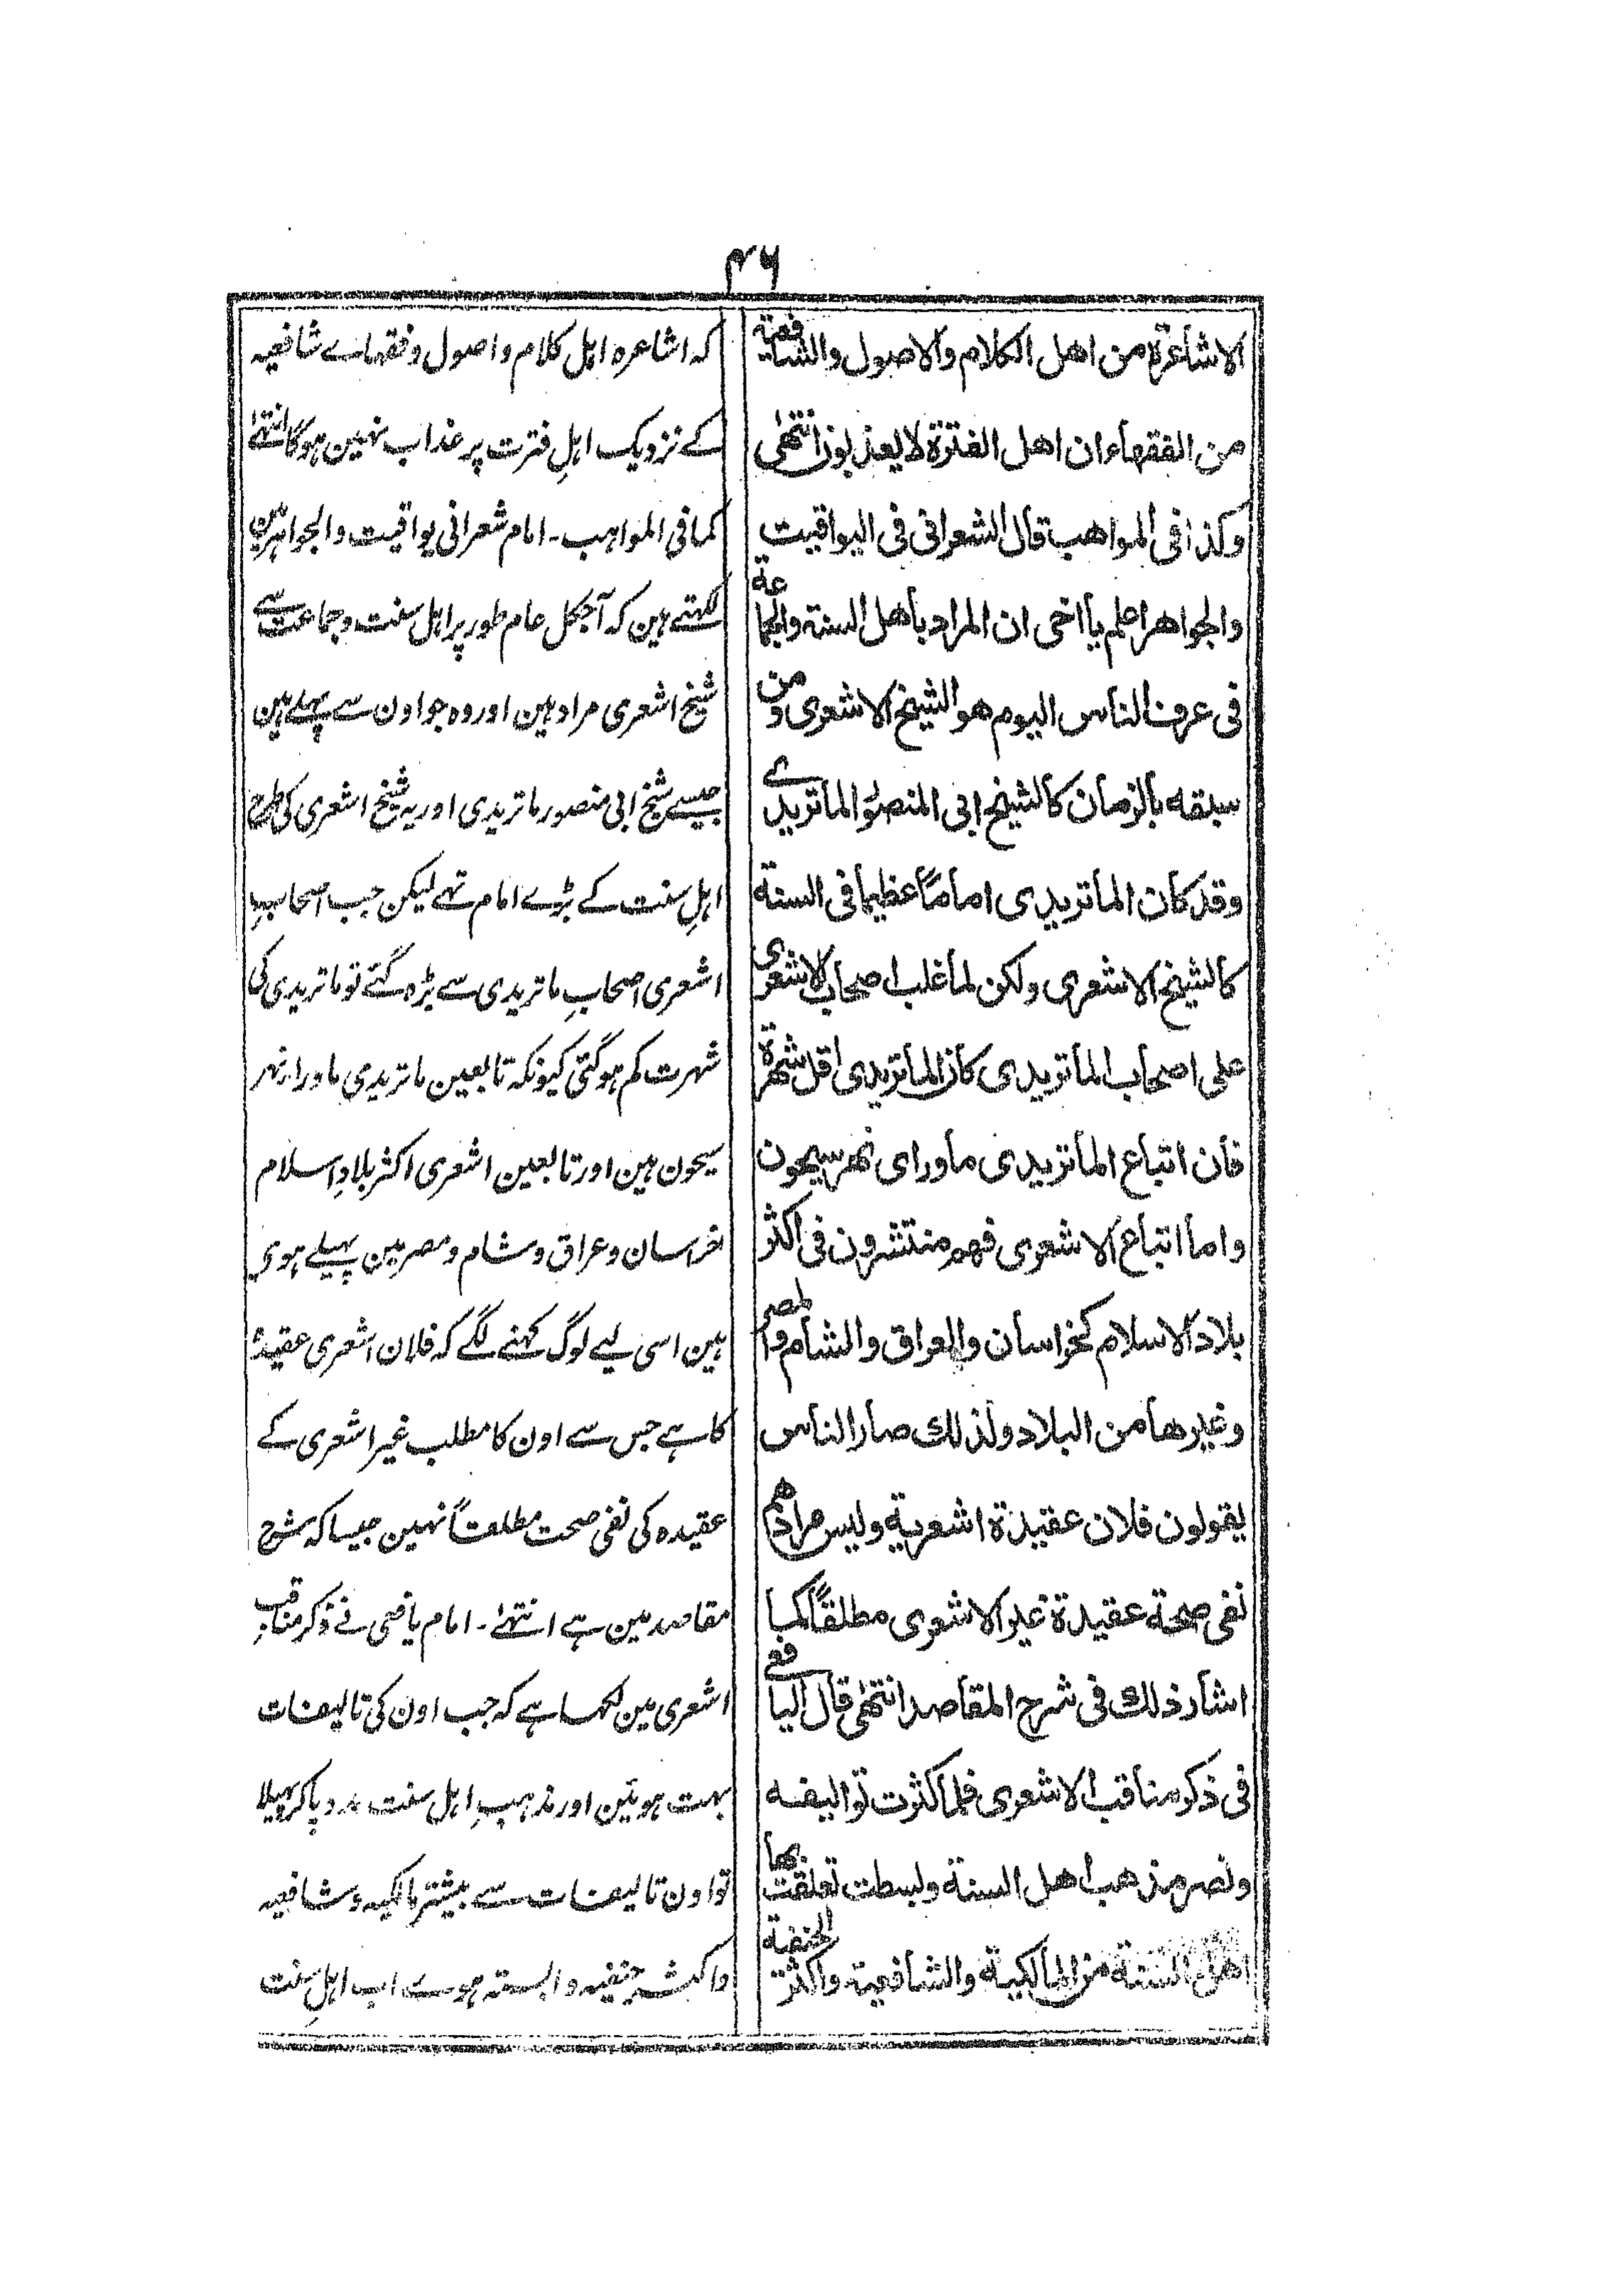 ۴۶
الاشاعرة من اهل الكلام والاصول والشافعية
من الفقهاء ان اهل الفترة لا يعذبون انتهى
وكذا فى المواهب قال الشعرانى فى اليواقيت
والجواهر اعلم يا اخى ان المراد باهل السنة والجماعة
فى عرف الناس اليوم هو الشيخ الاشعرى ومن
سبقه بالزمان كالشيخ ابى المنصور الماتريدے
وقد كان الماتريدى اماماً عظيما فى السنة
كالشيخ الاشعرى ولكن لما غلب اصحاب الاشعرى
على اصحاب الماتريدى كان الماتريدى اقل شهرة
فان اتباع الماتريدى ماوراى نهر سيحون
واما اتباع الاشعرى فهم منتشرون فى اكثر
بلاد الاسلام كخراسان والعراق والشام والمصر
وغيرها من البلاد ولذلك صار الناس
يقولون فلان عقيدة اشعرية وليس مرادهم
نفى صحة عقيدة غير الاشعرى مطلقاً كما
اشار ذلك فى شرح المقاصد انتهى قال اليافعے
فى ذكر مناقب الاشعرى فلما كثرت تواليفه
ونصر مذهب اهل السنة وبسطت تعلقت بها
اهل السنة من المالكية والشافعية واكثر الحنفية
کہ اشاعرہ اہل کلام و اصول و فقہاے شافعیہ
کے نزدیک اہلِ فترت پر عذاب نہین ہوگا انتہےٰ
کما فی المواہب۔ امام شعرانی یواقیت والجواہر مین
لکھتے ہین کہ آجکل عام طور پر اہل سنت وجماعت سے
شیخ اشعری مراد ہین اور وہ جو اون سے پہلے ہین
جیسے شیخ ابی منصور ماتریدی اور یہ شیخ اشعری کی طرح
اہلِ سنت کے بڑے امام تہے لیکن جب اصحابِ
اشعری اصحابِ ماتریدی سے بڑہ گئے تو ماتریدی کی
شہرت کم ہوگئی کیونکہ تابعین ماتریدی ماورا نہر
سیحون ہین اور تابعین اشعری اکثر بلادِ اسلام
خراسان و عراق و شام و مصر مین پہیلے ہوے
ہین اسی لیے لوگ کہنے لگے کہ فلان اشعری عقیدۂ
کا ہے جس سے اون کا مطلب غیر اشعری کے
عقیدہ کی نفی صحت مطلقاً نہین جیسا کہ شرح
مقاصد مین ہے انتہےٰ۔ امام یافعی نے ذکر مناقبِ
اشعری مین لکہا ہے کہ جب اون کی تالیفات
بہت ہوئین اور مذہبِ اہل سنت مدد پاکر پہیلا
تو اون تالیفات سے بیشتر مالکیہ و شافعیہ
واکثر حنفیہ وابستہ ہوے اب اہلِ سنت